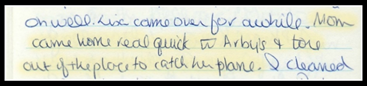 on well. Lisa came over for awhile. Mom
came home real quick w Arby's & tore
out of the place to catch her plane. I cleaned